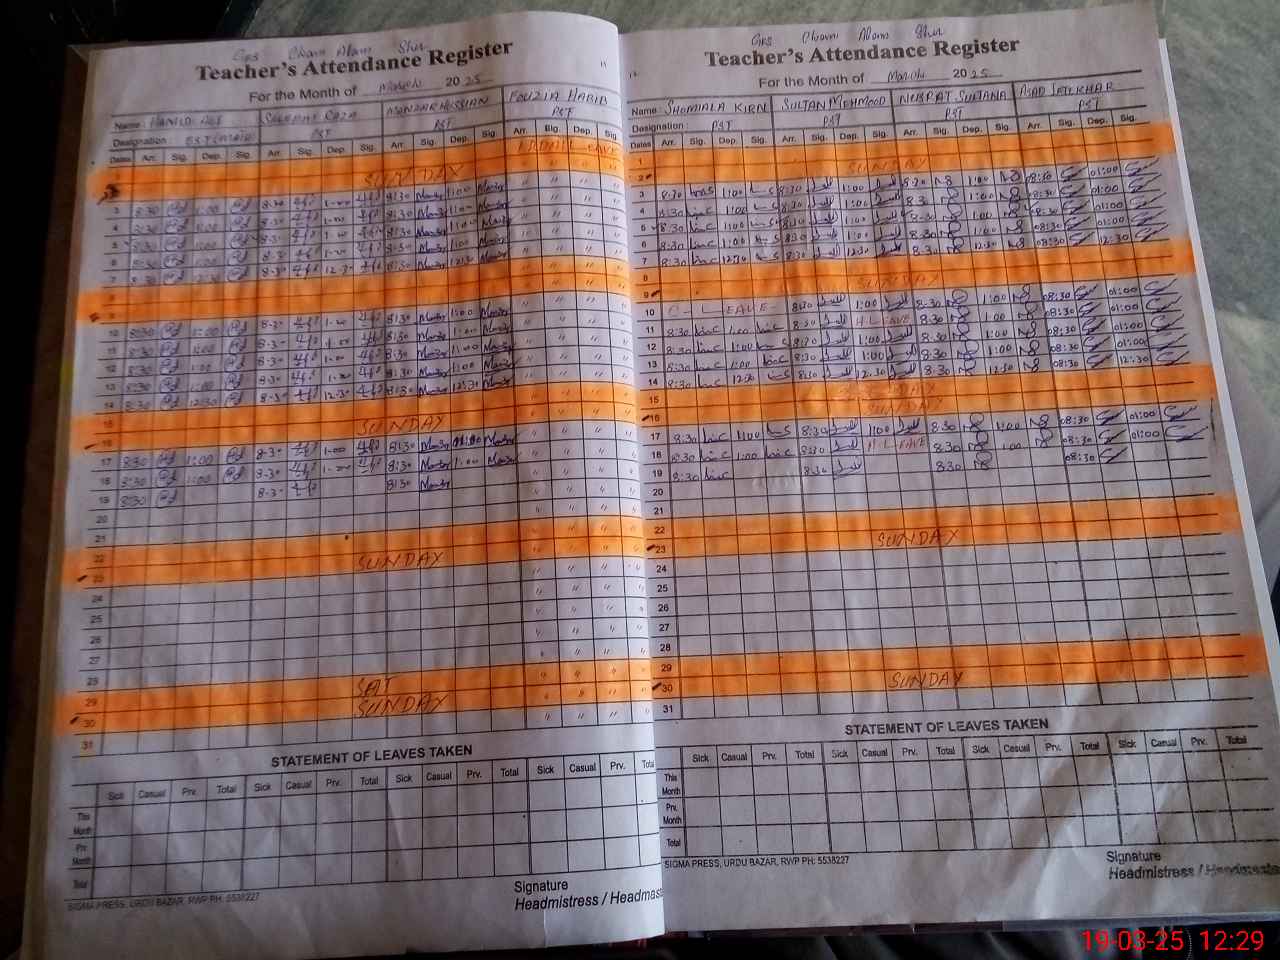 GPS Cham Alam Sher
Teacher's Attendance Register
For the Month of March 2025
11
Name: HAMID ALI
SALEEM RAZA
MANZAR HUSSIAN
FOUZIA HABIB
Designation:
PST
PST
PST
Dates Arr. Sig. Dep. Sig. Arr. Sig. Dep. Sig. Arr. Sig. Dep. Sig. Arr. Sig. Dep. Sig.
SUNDAY
3 8:30 1:00 8-30 1-00 8:30 1:00
4 8:30 1:00 8-30 1-00 8:30 1:00
5 8:30 1:00 8-30 1-00 8:30 1:00
6 8:30 1:00 8-30 1-00 8:30 1:00
7 8:30 12:30 8-30 12-30 8:30 12:30
8
9
10 8:30 1:00 8-30 1-00 8:30 1:00
11 8:30 1:00 8-30 1-00 8:30 1:00
12 8:30 1:00 8-30 1-00 8:30 1:00
13 8:30 1:00 8-30 1-00 8:30 1:00
14 8:30 12:30 8-30 12-30 8:30 12:30
15
16 SUNDAY
17 8:30 1:00 8-30 1-00 8:30 1:00
18 8:30 1:00 8-30 1-00 8:30 1:00
19 8:30 8-30 8:30
20
21
22
23 SUNDAY
24
25
26
27
28
29 SAT
30 SUNDAY
31
STATEMENT OF LEAVES TAKEN
Sick Casual Prv. Total Sick Casual Prv. Total Sick Casual Prv. Total Sick Casual Prv. Total
This Month
Prv. Month
Total
SIGMA PRESS, URDU BAZAR, RWP PH: 5538227
Signature
Headmistress / Headmaster
GPS Cham Alam Sher
Teacher's Attendance Register
12
For the Month of March 2025
Name: SHOMIALA KIRN
SULTAN MEHMOOD
NUSRAT SULTANA
ASAD IFTIKHAR
Designation: PST
PST
PST
PST
Dates Arr. Sig. Dep. Sig. Arr. Sig. Dep. Sig. Arr. Sig. Dep. Sig. Arr. Sig. Dep. Sig.
1
2 SUNDAY
3 8:30 1:00 8:30 1:00 8:30 1:00 08:30 01:00
4 8:30 1:00 8:30 1:00 8:30 1:00 08:30 01:00
5 8:30 1:00 8:30 1:00 8:30 1:00 08:30 01:00
6 8:30 1:00 8:30 1:00 8:30 1:00 08:30 01:00
7 8:30 12:30 8:30 12:30 8:30 12:30 08:30 12:30
8
9 SUNDAY
10 C-LEAVE- 8:30 1:00 8:30 1:00 08:30 01:00
11 8:30 1:00 8:30 H-LEAVE 8:30 1:00 08:30 01:00
12 8:30 1:00 8:30 1:00 8:30 1:00 08:30 01:00
13 8:30 1:00 8:30 1:00 8:30 1:00 08:30 01:00
14 8:30 12:30 8:30 12:30 8:30 12:30 08:30 12:30
15
16 SUNDAY
17 8:30 1:00 8:30 1:00 8:30 1:00 08:30 01:00
18 8:30 1:00 8:30 H LEAVE 8:30 1:00 08:30 01:00
19 8:30 8:30 8:30 08:30
20
21
22
23 SUNDAY
24
25
26
27
28
29
30 SUNDAY
31
STATEMENT OF LEAVES TAKEN
Sick Casual Prv. Total Sick Casual Prv. Total Sick Casual Prv. Total Sick Casual Prv. Total
This Month
Prv. Month
Total
SIGMA PRESS, URDU BAZAR, RWP PH: 5538227
Signature
Headmistress / Headmaster
19-03-25 12:29